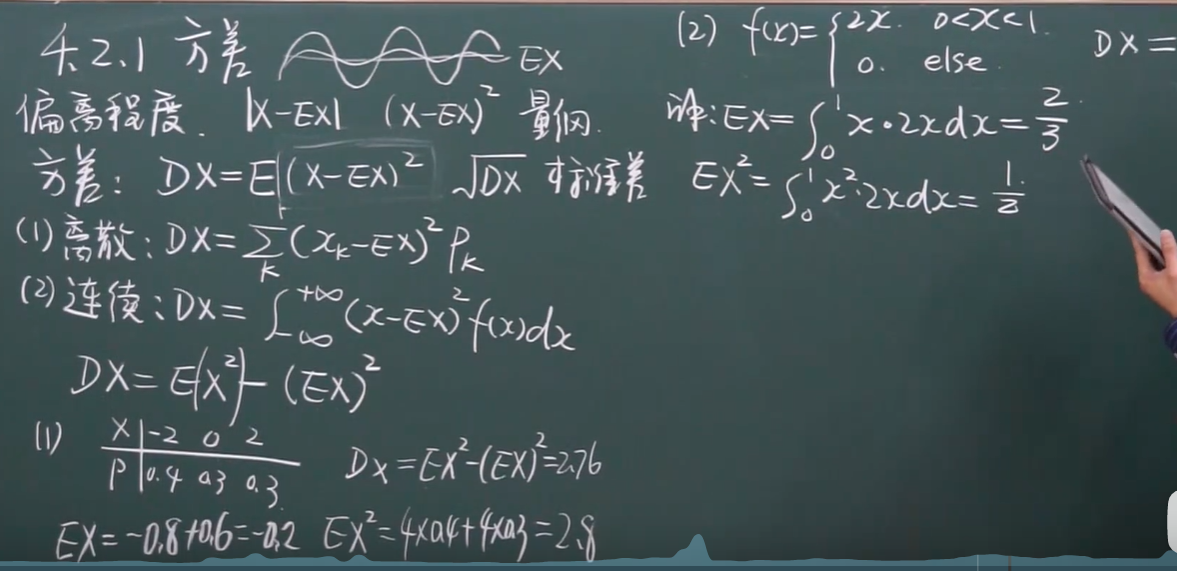 4.2.1 方差 EX
偏离程度. |X-EX| (X-EX)² 量纲.
方差: DX=E[(X-EX)²] √DX 标准差
(1) 离散: DX=∑ₖ(xₖ-EX)²Pₖ
(2) 连续: DX=∫₋∞⁺∞(x-EX)²f(x)dx
DX=E(X²)-(EX)²
(1) X | -2 0 2
P | 0.4 0.3 0.3
DX=EX²-(EX)²=2.76
EX=-0.8+0.6=-0.2 EX²=4×0.4+4×0.3=2.8
(2) f(x)={2x. 0<x<1.
0. else.
DX=
解: EX=∫₀¹x·2xdx=2/3
EX²=∫₀¹x²·2xdx=1/2